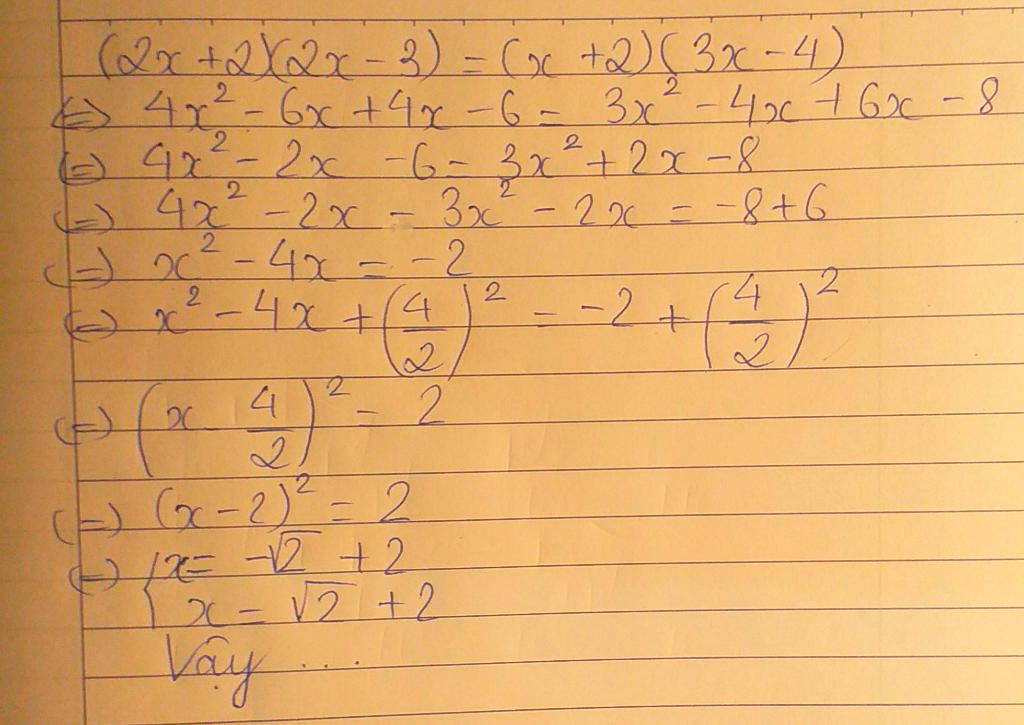 (2x+2)(2x-3) = (x+2)(3x-4)
⇔ 4x² - 6x + 4x - 6 = 3x² - 4x + 6x - 8
⇔ 4x² - 2x - 6 = 3x² + 2x - 8
⇔ 4x² - 2x - 3x² - 2x = -8+6
⇔ x² - 4x = -2
⇔ x² - 4x + (4/2)² = -2 + (4/2)²
⇔ (x - 4/2)² = 2
⇔ (x-2)² = 2
⇔ { x = -√2 + 2
x = √2 + 2
Vậy ...